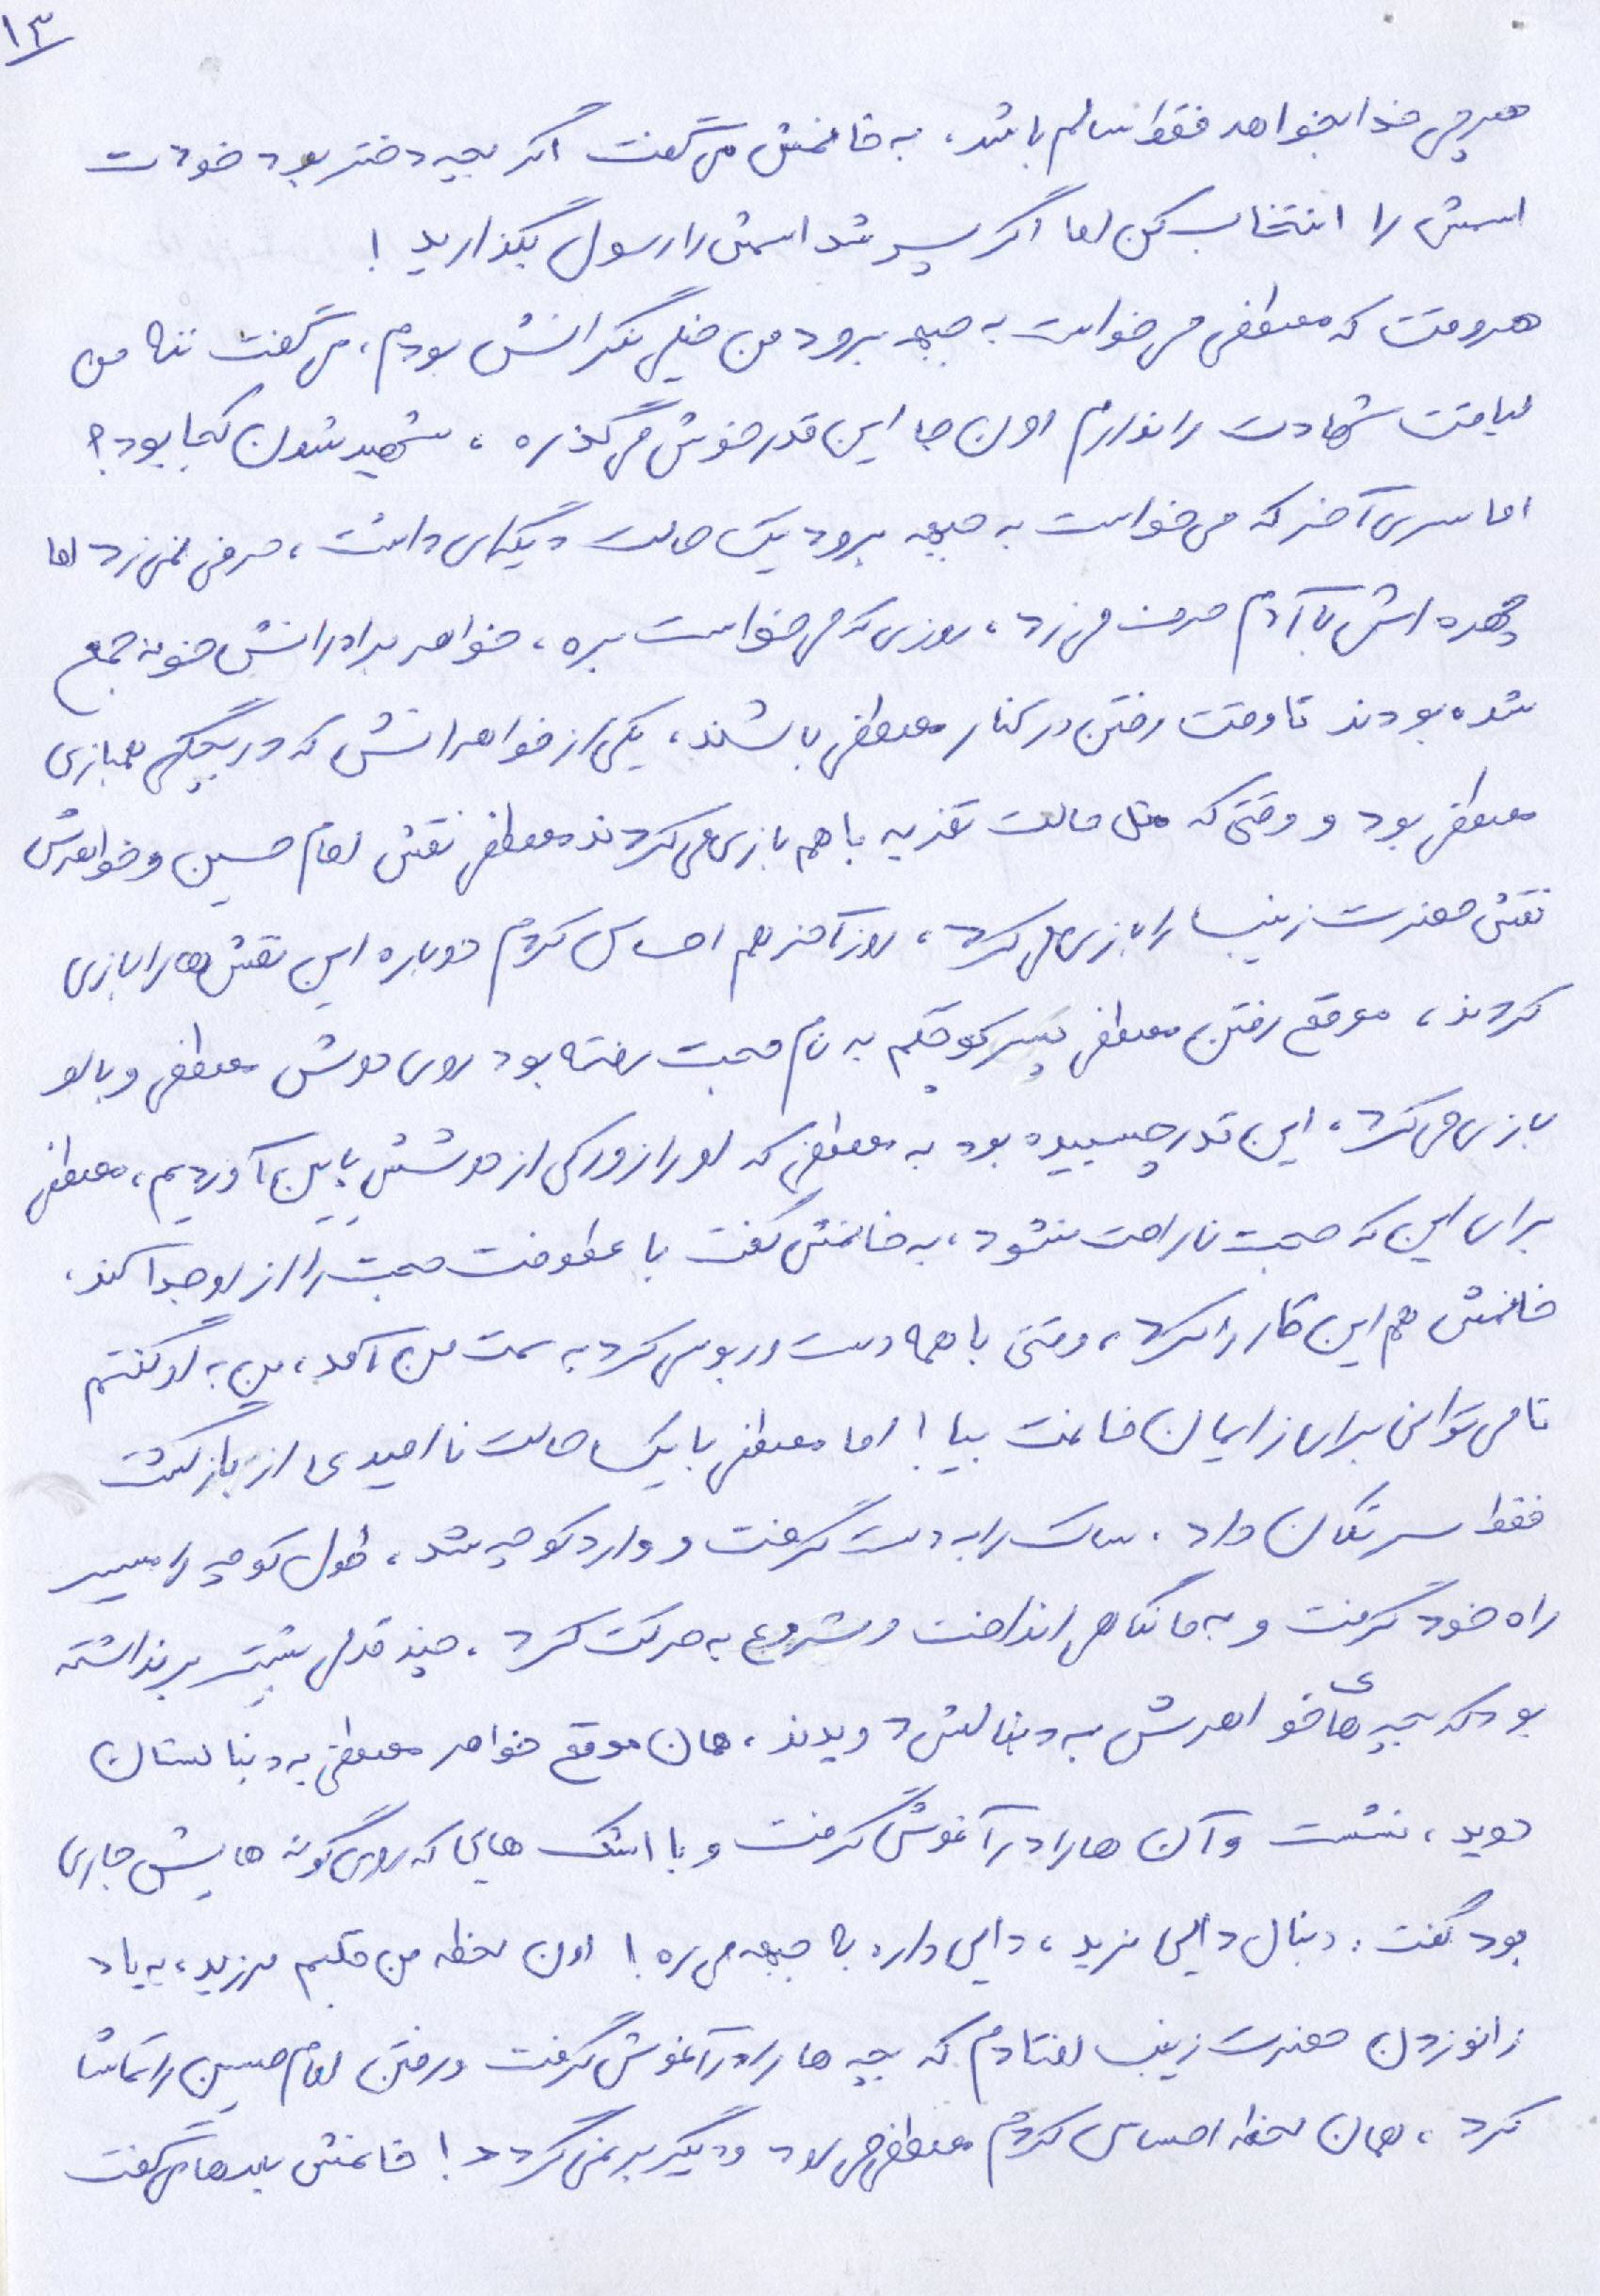 ۱۳
هرچی خدا بخواهد فقط سالم باشد، به خانمش می گفت اگر بچه دختر بود خودت
اسمش را انتخاب کن اما اگر پسر شد اسمش را رسول بگذارید !
هروقت که مصطفی می خواست به جبهه برود من خیلی نگرانش بودم، می گفت ننه من
لیاقت شهادت را ندارم اون جا این قدر خوش می گذره، شهید شدن کجا بود؟
اما سری آخر که می خواست به جبهه برود یک حالت دیگه ای داشت، حرفی نمی زد اما
چهره اش با آدم حرف می زد، روزی که می خواست بره، خواهر برادرانش خونه جمع
شده بودند تا وقت رفتن در کنار مصطفی باشند، یکی از خواهرانش که در بچگی همبازی
مصطفی بود و وقتی که مثل حالت تعزیه با هم بازی می کردند مصطفی نقش امام حسین و خواهرش
نقش حضرت زینب را بازی می کرد، روز آخر هم احساس کردم دوباره این نقش ها را بازی
کردند، موقع رفتن مصطفی پسر کوچکم به نام محبت رفته بود روی دوش مصطفی و با او
بازی می کرد، این قدر چسبیده بود به مصطفی که او را زورکی از دوشش پایین آوردیم، مصطفی
برای این که محبت ناراحت نشود، به خانمش گفت با عطوفت محبت را از او جدا کند،
خانمش هم این کار را کرد، وقتی با همه دست و ربوسی کرد به سمت من آمد، من به او گفتم
تا می توانی برای زایمان خانمت بیا ! اما مصطفی با یک حالت ناامیدی از بازگشت
فقط سر تکان داد. ساک را به دست گرفت و وارد کوچه شد، طول کوچه را مسیر
راه خود گرفت و به ما نگاهی انداخت و شروع به حرکت کرد. چند قدمی بیشتر برنداشته
بود که بچه های خواهرش به دنبالش دویدند، همان موقع خواهر مصطفی به دنبالشان
دوید، نشست و آن ها را در آغوش گرفت و با اشک هایی که روی گونه هایش جاری
بود گفت: دنبال دایی نرید، دایی داره به جبهه می ره ! اون لحظه من قلبم لرزید، به یاد
زانو زدن حضرت زینب افتادم که بچه ها را در آغوش گرفت و رفتن امام حسین را تماشا
کرد، همان لحظه احساس کردم مصطفی می رود و دیگر برنمی گردد ! خانمش بعدها می گفت